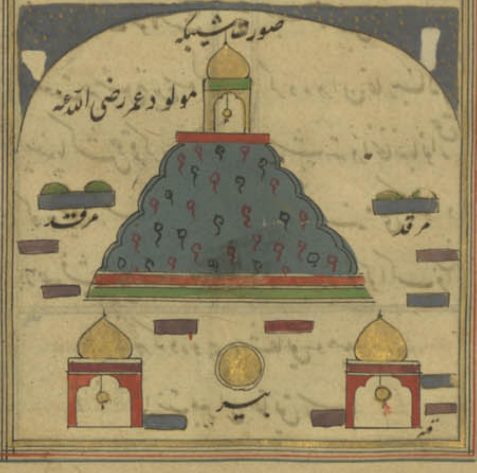 صورت شبیکه
مولود عمر رضی الله عنه
مرقد
مرقد
بیر